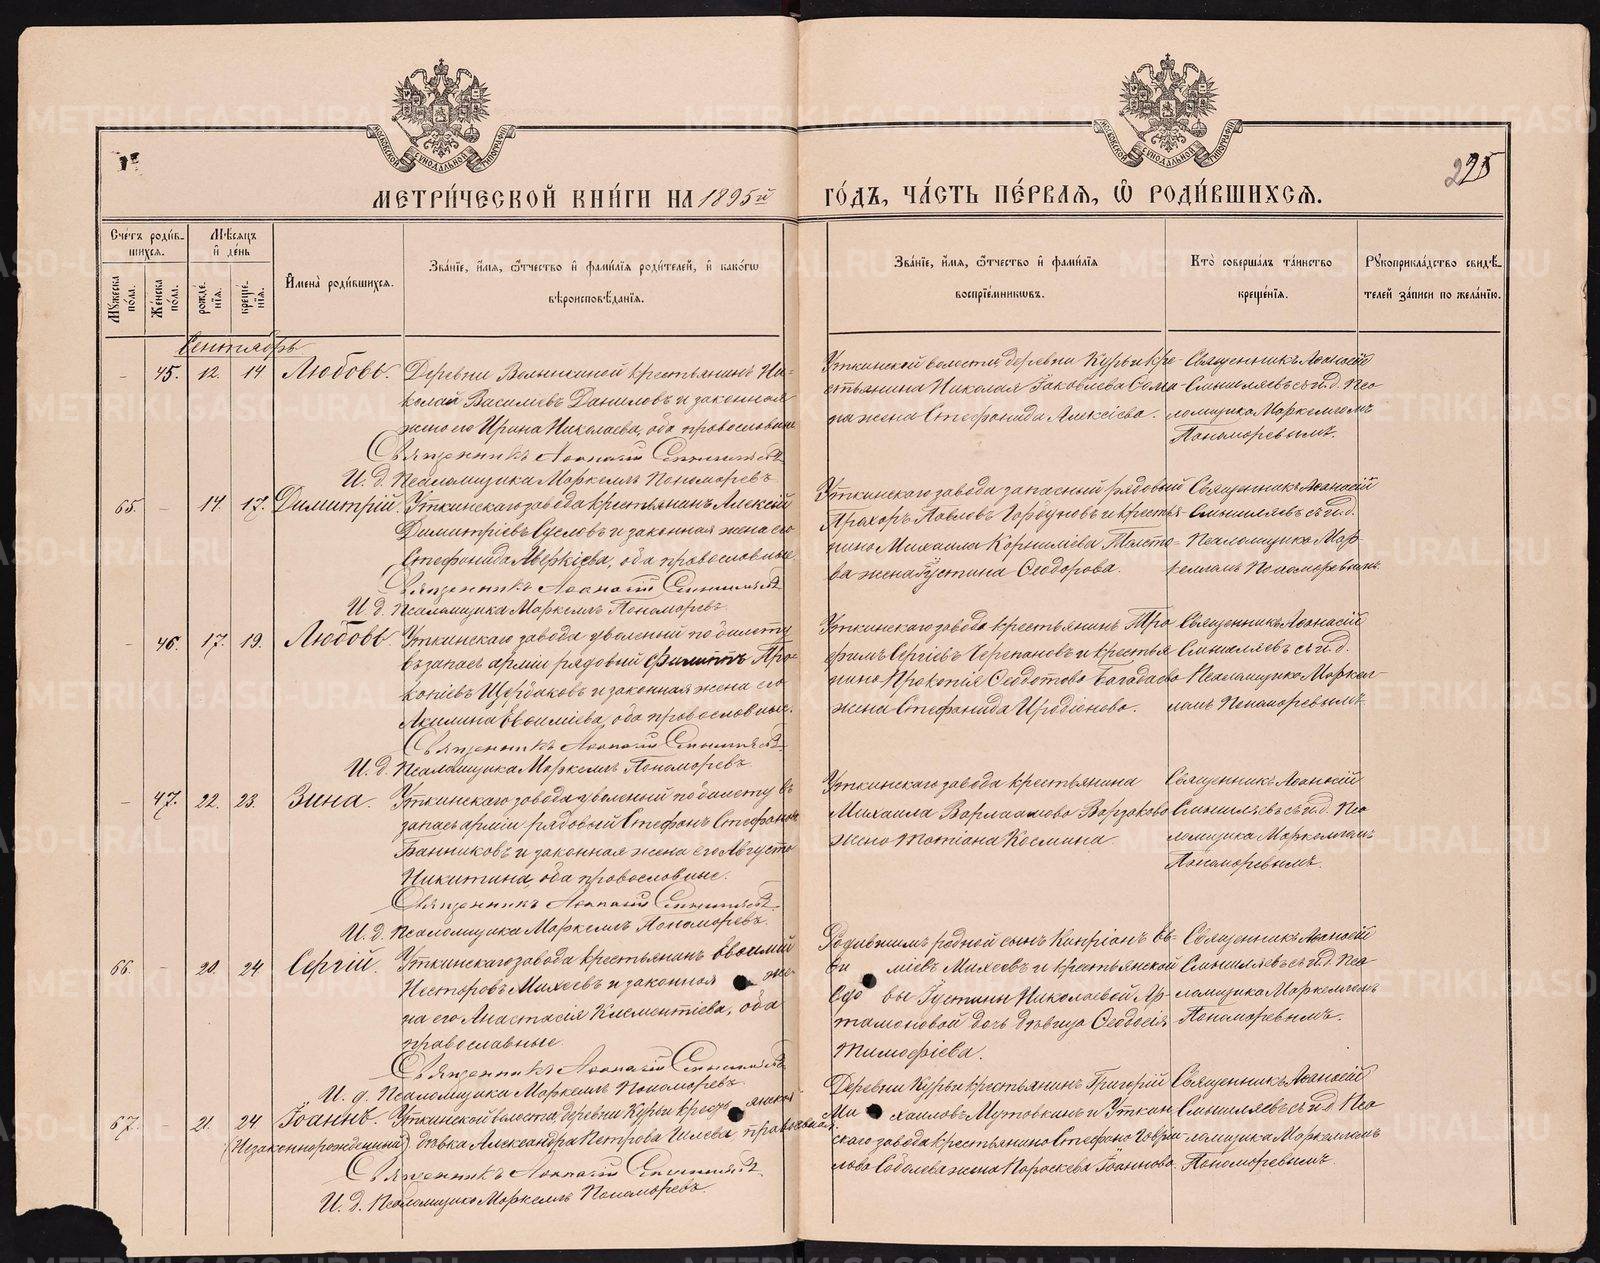 МЕТРИ́ЧЕСКОЙ КНИ́ГИ НА 1895й ГО́ДЪ, ЧА́СТЬ ПЕ́РВАѦ, Ѡ҆ РОДИ́ВШИХСѦ.
225
Сче́тъ роди́в-шихсѧ.
Мꙋ́жеска по́ла.
Же́нска по́ла.
Мѣ́сѧцъ и҆ де́нь
рожде́нїѧ.
креще́нїѧ.
И҆мена̀ роди́вшихсѧ.
Зва́нїе, и҆́мѧ, ѻ҆́тчество и҆ фами́лїѧ роди́телей, и҆ како́гѡ
вѣроисповѣ́данїѧ.
Зва́нїе, и҆́мѧ, ѻ҆́тчество и҆ фами́лїѧ
воспрїе́мникѡвъ.
Кто̀ соверша́лъ та́инство
креще́нїѧ.
Рꙋкоприкла́дство свидѣ́-
телей за́писи по жела́нїю.
Сентябрь
45. 12. 14 Любовь.
Деревни Волынкиной крестьянинъ Ни-
колай Васильевъ Даниловъ и законная
жена его Ирина Николаева, оба православные
Священникъ Аѳанасій Смышляевъ
И. д. Псаломщика Маркеллъ Пономаревъ
Уткинской волости деревни Курьи кре-
стьянина Николая Іаковлева
жена Стефанида Алексіева.
Священникъ Аѳанасій
Смышляевъ съ и. д. Пса-
ломщика Маркелломъ
Пономаревымъ.
65. 14. 17. Димитрій.
Уткинскаго завода крестьянинъ Алексій
Димитріевъ Сусловъ и законная жена его
Стефанида Аверкіева, оба православные
Священникъ Аѳанасій Смышляевъ
И. д. Псаломщика Маркеллъ Пономаревъ
Уткинскаго завода запасный рядовый
Прохоръ Павловъ Горбуновъ и крестья-
нина Михаила Корниліева Толсто-
ва жена Іустина Ѳеодорова.
Священникъ Аѳанасій
Смышляевъ съ и. д.
Псаломщика Мар-
келломъ Пономаревымъ.
46. 17. 19. Любовь.
Уткинскаго завода уволенный по билету
въ запасъ арміи рядовый Филиппъ Про-
копіевъ Щербаковъ и законная жена его
Акилина Евѳиміева, оба православные.
Священникъ Аѳанасій Смышляевъ
И. д. Псаломщика Маркеллъ Пономаревъ
Уткинскаго завода крестьянинъ Тро
фимъ Сергіевъ Черепановъ и крестья
нина Прокопія Ѳедотова
жена Стефанида Иродіонова.
Священникъ Аѳанасій
Смышляевъ съ и. д.
Псаломщика Маркел-
ломъ Пономаревымъ
47. 22. 23. Зина.
Уткинскаго завода уволенный по билету въ
запасъ арміи рядовый Стефанъ Стефановъ
Банниковъ и законная жена его Августа
Никитина, оба православные.
Священникъ Аѳанасій Смышляевъ
И. д. Псаломщика Маркеллъ Пономаревъ
Уткинскаго завода крестьянина
Михаила Варлаамова
жена Татіана Космина
Священникъ Аѳанасій
Смышляевъ съ и. д. Пса
ломщика Маркелломъ
Пономаревымъ.
66. 20. 24 Сергій.
Уткинскаго завода крестьянинъ Евѳимій
Несторовъ Михеевъ и законная же-
на его Анастасія Климентіева, оба
православные
Священникъ Аѳанасій Смышляевъ
И. д. Псаломщика Маркеллъ Пономаревъ
Родившимъ родной сынъ Кипріанъ Ев-
ѳи міевъ Михеевъ и крестьянской
вдо вы Іустины Николаевой Ар-
тамоновой дочь дѣвица Ѳеодосія
Тимоѳіева.
Священникъ Аѳанасій
Смышляевъ съ и. д. Пса
ломщика Маркелломъ
Пономаревымъ.
67. 21. 24 Іоаннъ. (Незаконнорожденный)
Уткинской волости, деревни Курьи кресть янская
дѣвка Александра Петрова православная.
Священникъ Аѳанасій Смышляевъ
И. д. Псаломщика Маркеллъ Пономаревъ.
Деревни Курьи крестьянинъ Григорій
Ми хаиловъ Мутовкинъ и Уткин
скаго завода крестьянина Стефана Гаврі
лова Соболева жена Параскева Іоаннова
Священникъ Аѳанасій
Смышляевъ съ и. д. Пса
ломщика Маркелломъ
Пономаревымъ.
METRIKI.GASO-URAL.RU